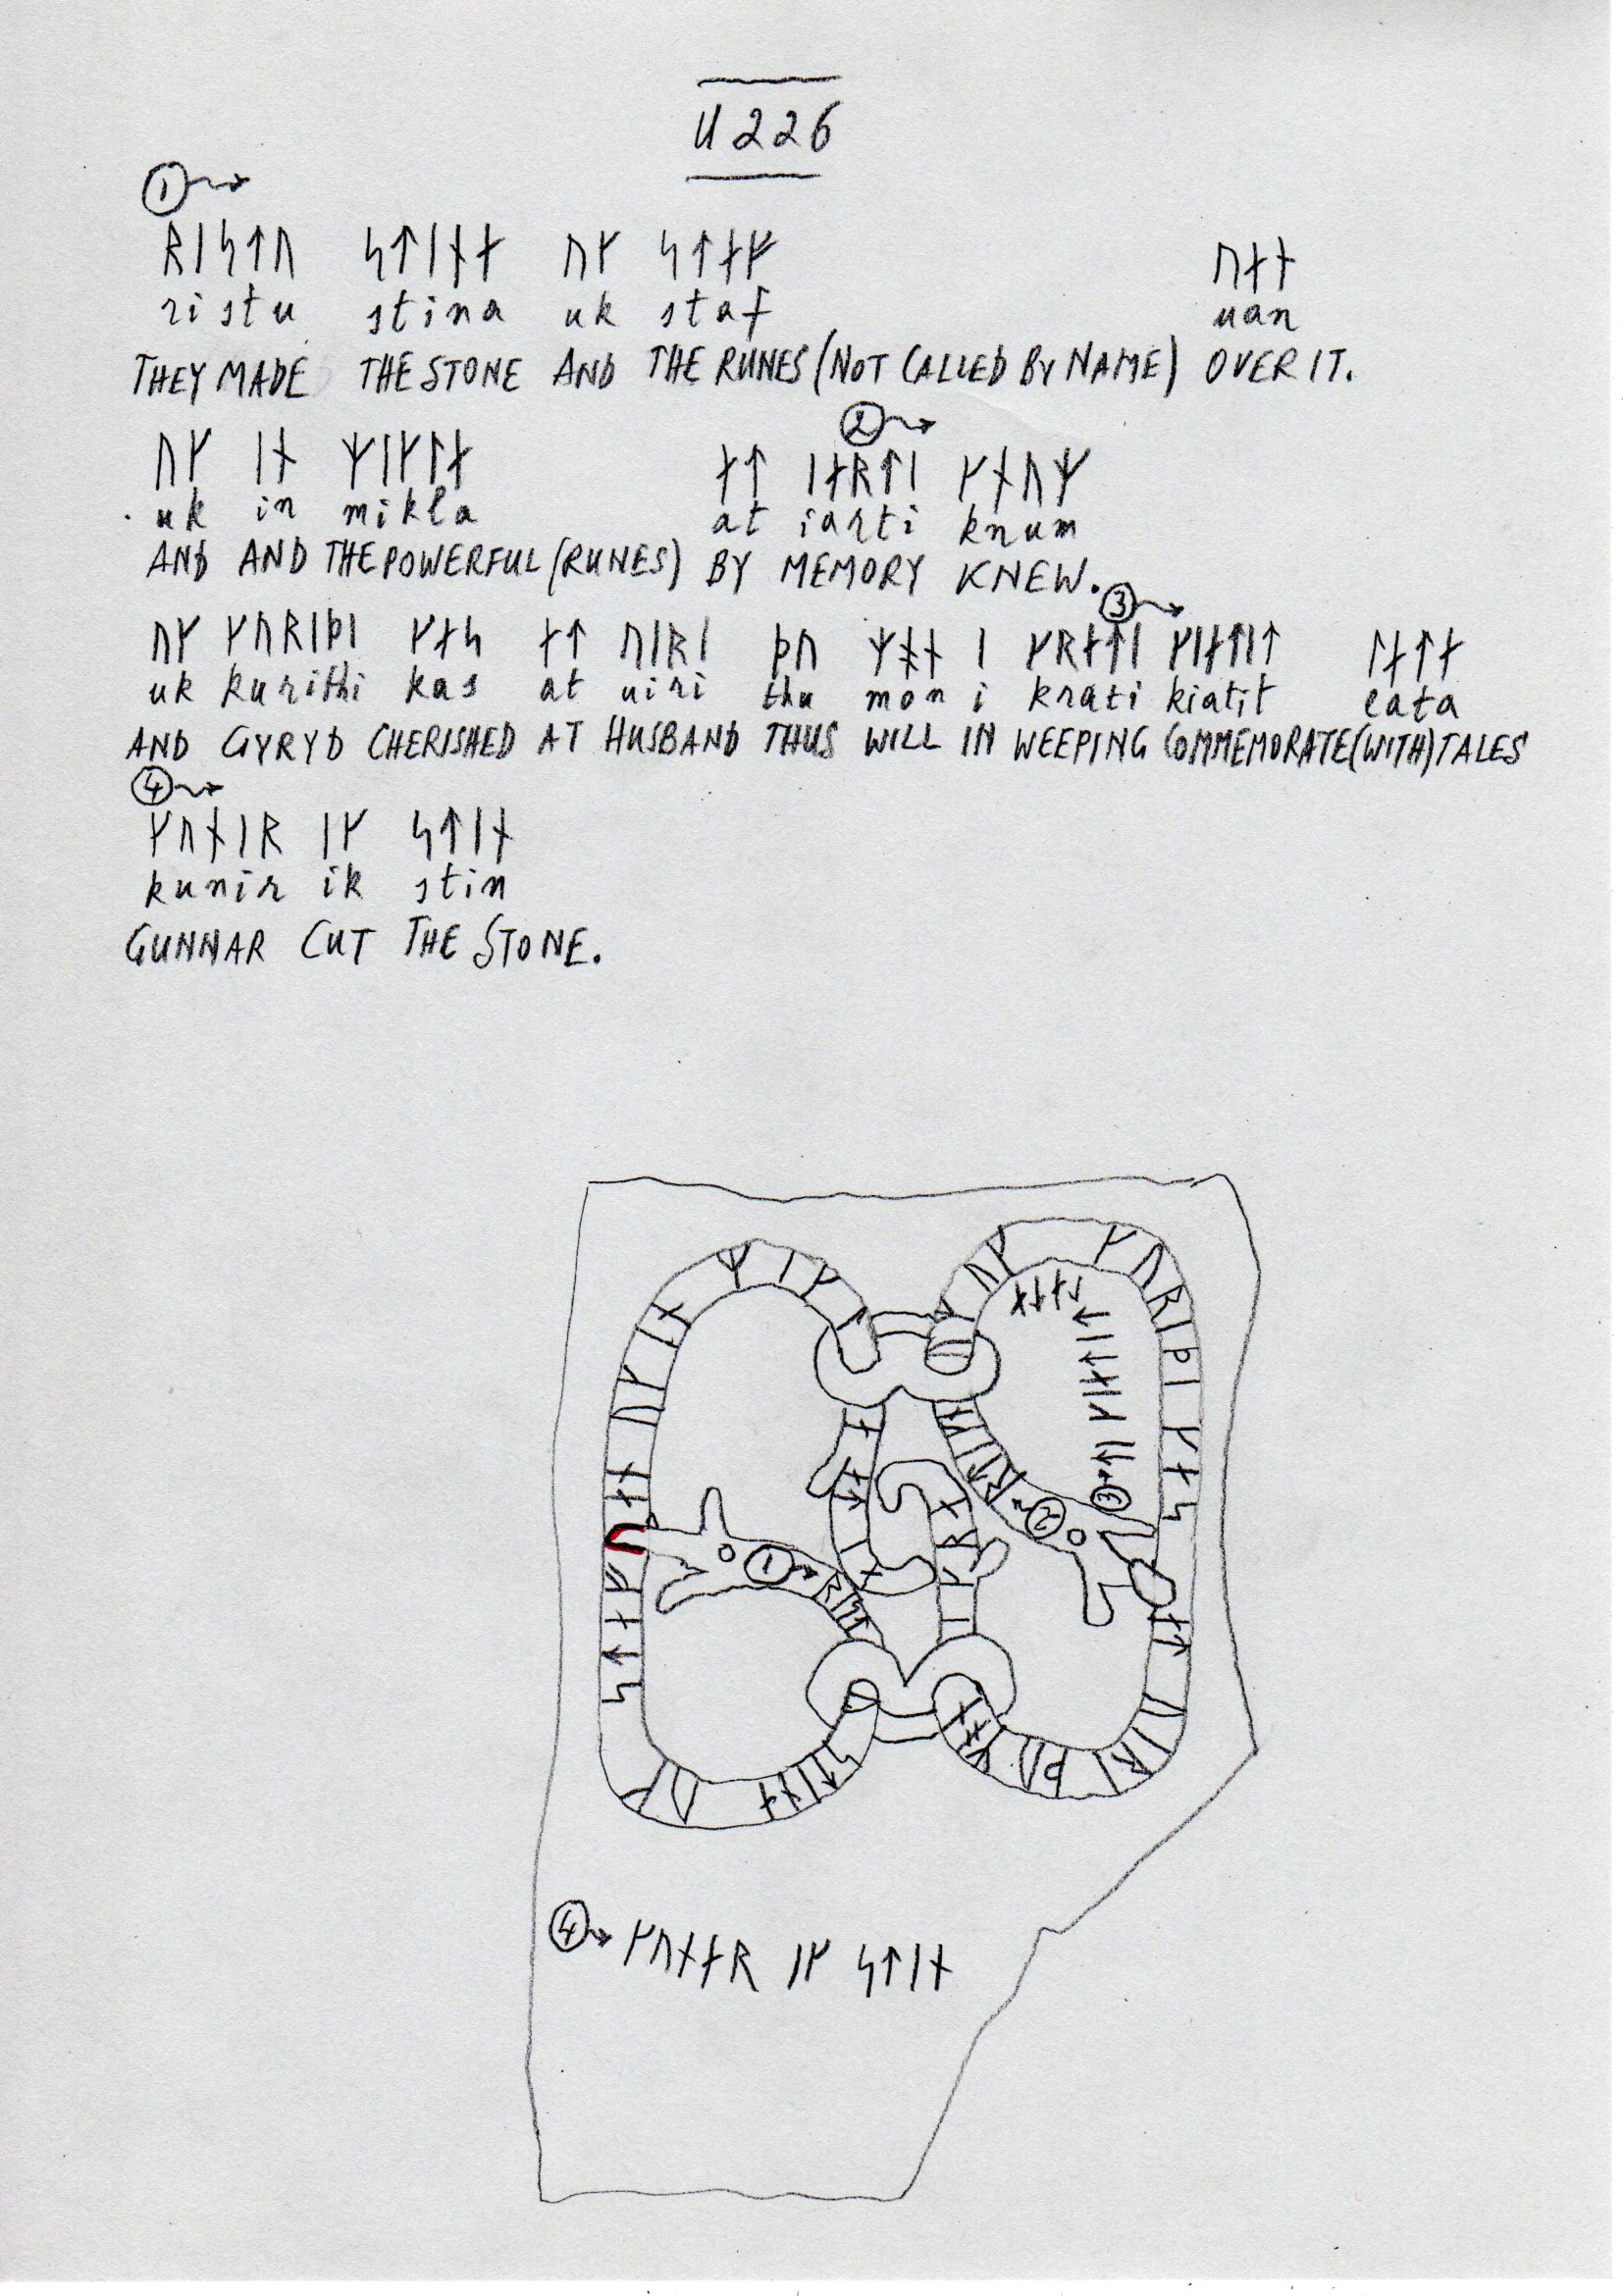 U 226
①
ᚱᛁᛋᛏᚢ ᛋᛏᛁᚾᛅ ᚢᚴ ᛋᛏᛅᚠ ᚢᛅᚾ
ristu stina uk staf uan
THEY MADE THE STONE AND THE RUNES (NOT CALLED BY NAME) OVER IT.
②
ᚢᚴ ᛁᚾ ᛘᛁᚴᛚᛅ ᛅᛏ ᛁᛅᚱᛏᛁ ᚴᚾᚢᛘ
uk in mikla at iarti knum
AND AND THE POWERFUL (RUNES) BY MEMORY KNEW.
③
ᚢᚴ ᚴᚢᚱᛁᚦᛁ ᚴᛅᛋ ᛅᛏ ᚢᛁᚱᛁ ᚦᚢ ᛘᚬᚾ ᛁ ᚴᚱᛅᛏᛁ ᚴᛁᛅᛏᛁᛏ ᛚᛅᛏᛅ
uk kurithi kas at uiri thu mon i krati kiatit lata
AND GYRYD CHERISHED AT HUSBAND THUS WILL IN WEEPING COMMEMORATE (WITH) TALES
④
ᚴᚢᚾᛁᚱ ᛁᚴ ᛋᛏᛁᚾ
kunir ik stin
GUNNAR CUT THE STONE.
ᛘᛁᚴᛚ
ᚢᚴ ᚴᚢᚱᛁᚦᛁ ᚴᛅᛋ
ᚢᚴ ᛁᚾ
ᚢᛅᚾ
①
②
③
ᛋᛏᛅᚠ
ᛅᛏ ᚢᛁᚱᛁ ᚦᚢ ᛘᚬᚾ
ᛋᛏᛁᚾᛅ ᚢᚴ
④ ᚴᚢᚾᛅᚱ ᛁᚴ ᛋᛏᛁᚾ